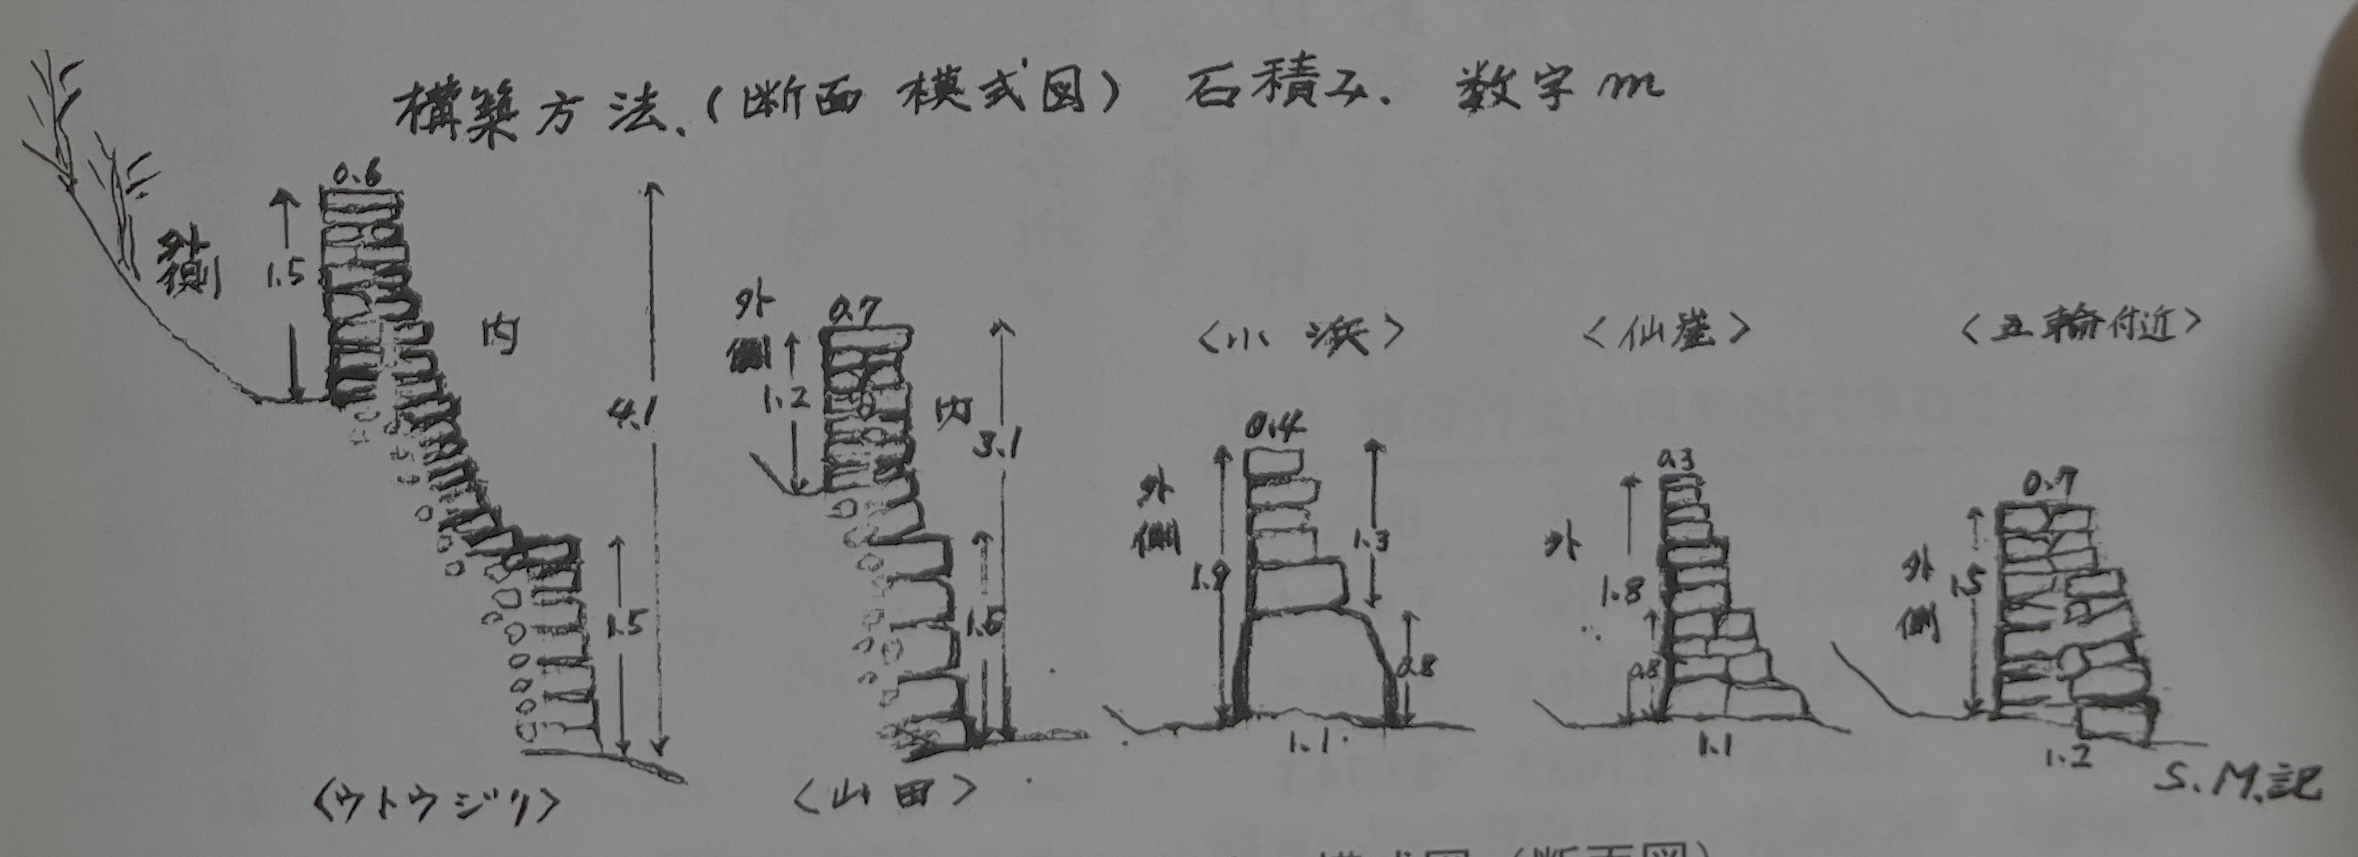 構築方法、(断面模式図) 石積み. 数字m
0.6
外側
1.5
内
4.1
1.5
〈ウトウジリ〉
外側
0.7
1.2
内
3.1
1.6
〈山田〉
〈小浜〉
0.4
外側
1.9
1.3
0.8
1.1
〈仙崖〉
0.3
外
1.8
0.8
1.1
〈五輪付近〉
0.7
外側
1.5
1.2
S.M.記
模式図(断面図)